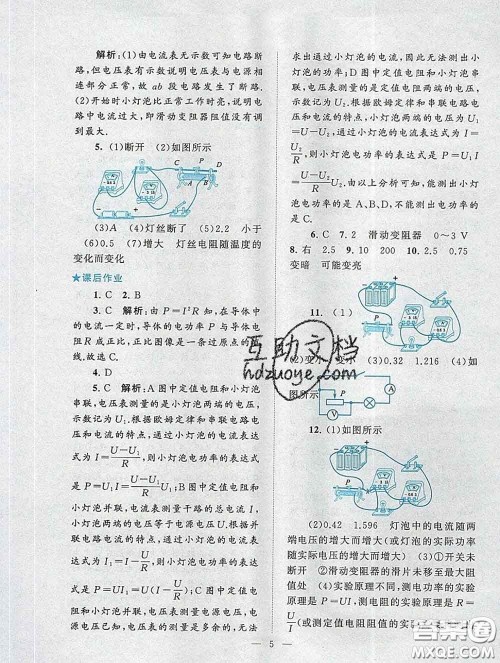 解析:(1)由电流表无示数可知电路断
路,但电压表有示数说明电压表与电源相
连部分正常,故ab段电路发生了断路。
(2)开始时小灯泡比正常工作时亮,说明电
路中电流过大,即滑动变阻器阻值没有调
到最大.
5. (1)断开 (2)如图所示
(3)A (4)灯丝断了 (5)2.2 小于
(6)0.5 (7)增大 灯丝电阻随温度的
变化而变化
★课后作业
1. C 2. B
3. C 解析:由P=I²R知,在导体中
的电流一定时,导体的电功率P与导体电
阻R成正比,正比图像是一条过原点的直
线,故选C.
4. D
5. C 解析:A图中定值电阻和小灯泡
串联,电压表测量的是小灯泡两端的电压,
示数记作U₁,根据欧姆定律和串联电路电
压、电流的特点,通过小灯泡的电流表达
式为I=(U-U₁)/R,则小灯泡电功率的表达式
是P=U₁I=U₁(U-U₁)/R;B图中定值电阻和小
灯泡并联,电流表测量干路的总电流I,并
联电路两端的电压等于电源电压U,根据
并联电路的特点,通过小灯泡的电流表达
式为I₁=I-U/R,则小灯泡电功率的表达式
是P=UI₁=U(I-U/R);C图中定值电阻和
小灯泡并联,电压表测量电源电压,电源电
压已知,电压表的测量是多余的,无法
求出通过小灯泡的电流,因此无法测出小
灯泡的功率;D图中定值电阻和小灯泡串
联,电压表测量的是定值电阻两端的电压,
示数记作U₂,小灯泡两端的电压为
U₁=U-U₂,通过小灯泡的电流为I=
U₂/R,则小灯泡功率的表达式是P=U₁I=
(U-U₂)U₂/R,由以上分析可知,能测出小
灯泡电功率的是A、B、D,不能测出电功率
的是C.
6. C 7. 2 滑动变阻器 0～3 V
8. 右 2.5 9. 10 200 10. 2.5 0.75
变暗 可能变亮
11. (1)
(2)变小 变小 (3)0.32 1.216 (4)如
图所示
12. (1)如图所示
(2)0.42 1.596 灯泡中的电流随两
端电压的增大而增大(或灯泡的实际功率
随实际电压的增大而增大) (3)①开关未
断开 ②滑动变阻器的滑片未移至最大阻
值处 (4)实验原理不同,测电功率的实
验原理是P=UI,测电阻的实验原理是
R=U/I(或测定值电阻阻值的实
5
互助文档
hdzuoye.com
答案圈
MXQE.COM